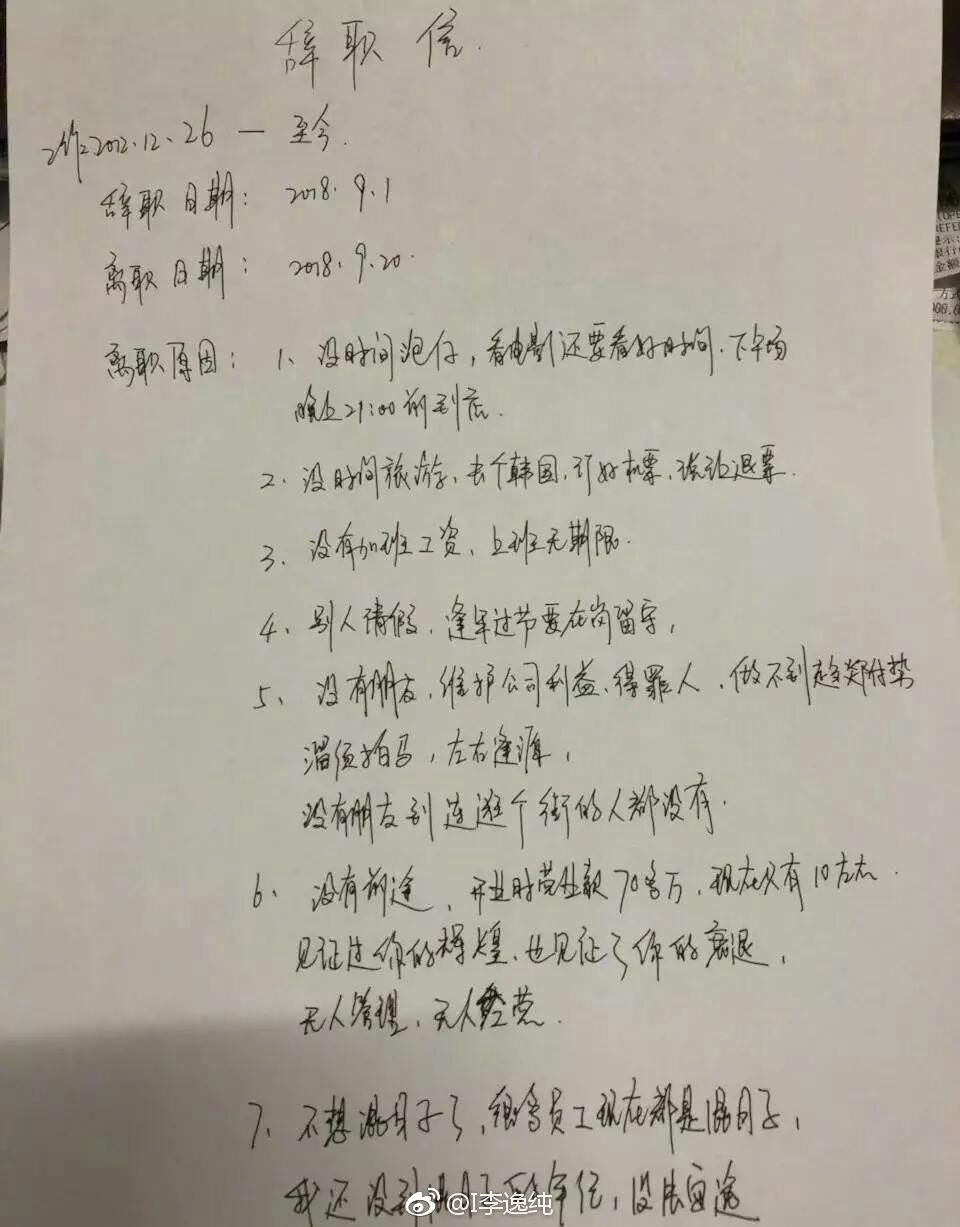 辞职信.
工作2012.12.26 — 至今.
辞职日期: 2018.9.1
离职日期: 2018.9.20.
离职原因: 1、没时间泡仔,看电影还要看好时间.下午场
晚上21:00前到店.
2、没时间旅游、去个韩国,订好机票,说让退票.
3、没有加班工资、上班无期限.
4、别人请假,逢年过节要在岗留守,
5、没有朋友,维护公司利益、得罪人,做不到趋炎附势
溜须拍马,左右逢源,
没有朋友到连逛个街的人都没有.
6、没有前途、开业时营业额70多万,现在只有10左右.
见证过你的辉煌、也见证了你的衰退,
无人管理、无人经营.
7、不想混日子了,很多员工现在都是混日子,
我还没到混日子的年纪,没法
@I李逸纯
金额